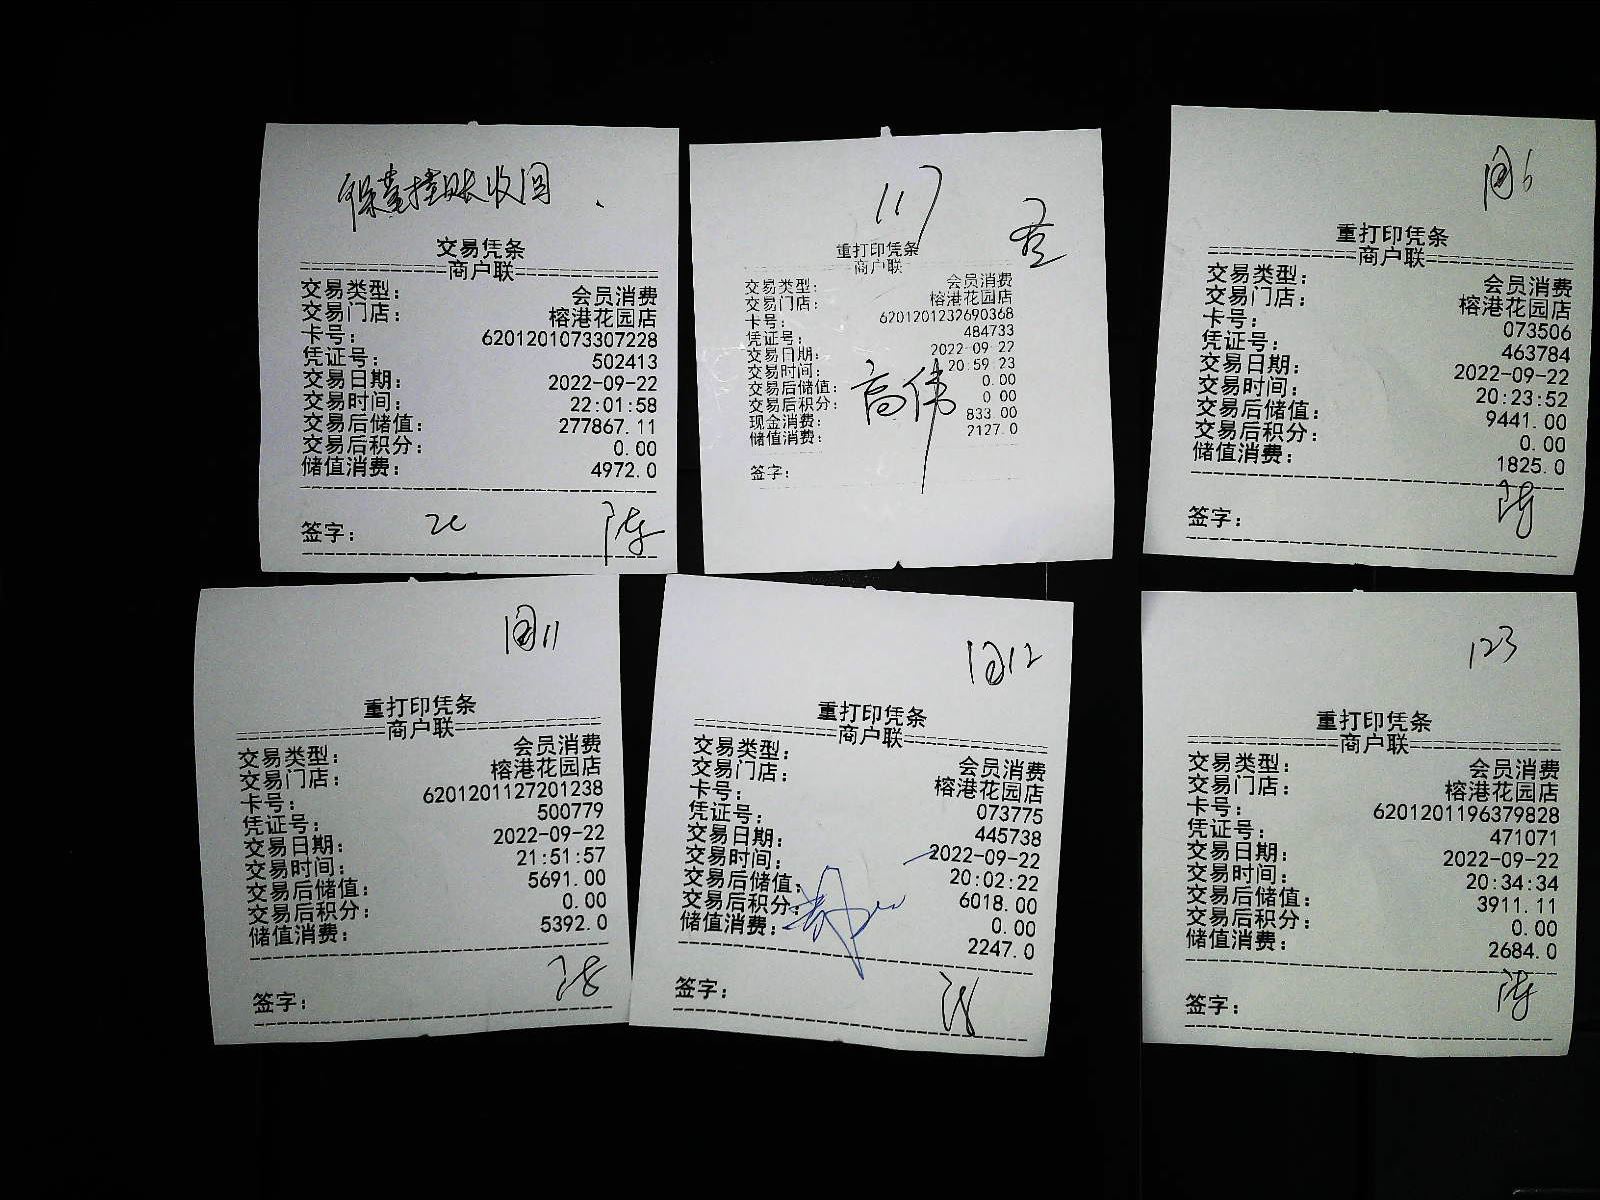 挂账收回
交易凭条
商户联
交易类型： 会员消费
交易门店： 榕港花园店
卡号： 6201201073307228
凭证号： 502413
交易日期： 2022-09-22
交易时间： 22:01:58
交易后储值： 277867.11
交易后积分： 0.00
储值消费： 4972.0
签字： 陈
117
重打印凭条
商户联
交易类型： 会员消费
交易门店： 榕港花园店
卡号： 6201201232690368
凭证号： 484733
交易日期： 2022-09-22
交易时间： 20:59:23
交易后储值： 0.00
交易后积分： 0.00
现金消费： 833.00
储值消费： 2127.0
高伟
签字：
6
重打印凭条
商户联
交易类型： 会员消费
交易门店： 榕港花园店
卡号： 073506
凭证号： 463784
交易日期： 2022-09-22
交易时间： 20:23:52
交易后储值： 9441.00
交易后积分： 0.00
储值消费： 1825.0
签字： 陈
11
重打印凭条
商户联
交易类型： 会员消费
交易门店： 榕港花园店
卡号： 6201201127201238
凭证号： 500779
交易日期： 2022-09-22
交易时间： 21:51:57
交易后储值： 5691.00
交易后积分： 0.00
储值消费： 5392.0
签字：
12
重打印凭条
商户联
交易类型： 会员消费
交易门店： 榕港花园店
卡号： 073775
凭证号： 445738
交易日期： 2022-09-22
交易时间： 20:02:22
交易后储值： 6018.00
交易后积分： 0.00
储值消费： 2247.0
签字：
123
重打印凭条
商户联
交易类型： 会员消费
交易门店： 榕港花园店
卡号： 6201201196379828
凭证号： 471071
交易日期： 2022-09-22
交易时间： 20:34:34
交易后储值： 3911.11
交易后积分： 0.00
储值消费： 2684.0
签字： 陈